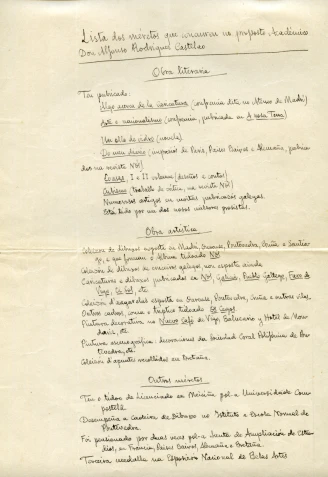 Lista dos méretos que concurren no proposto Académico
Don Alfonso Rodríguez Castelao
Obra literaria
Tén publicado:
Algo acerca de la caricatura (conferencia dita no Ateneo de Madri)
Arte e nacionalismo (conferencia, publicada en A nosa Terra)
Un ollo de vidro (novela)
Do meu diario (impresiós de Paris, Paises Baixos e Alemaña, publicadas na revista Nós)
Cousas, I e II volumes (dibuxos e contos)
Cubismo (traballo de crítica, na revista Nós)
Numerosos artigos en moitas publicaciós galegas.
Está tido por un dos nosos millores prosistas.
Obra artística
Coleición de dibuxos exposta en Madri, Ourense, Pontevedra, Cruña e Santiago, e que forman o Album titulado Nós
Coleición de dibuxos de cruceiros galegos, non exposta ainda
Caricaturas e dibuxos publicados en Nós, Galicia, Pueblo Gallego, Faro de
Vigo, El Sol, etc
Coleición d'acuarelas exposta en Ourense, Pontevedra, Cruña e outras vilas.
Outros cadros, coma o tríptico titulado El Ciego.
Pintura decorativa no Nuevo Café de Vigo, Balneario y Hotel de Mondariz, etc.
Pintura escenográfica: decoraciones da Sociedad Coral Polifónica de Pontevedra, etc.
Coleición d'apuntes recollidos en Bretaña.
Outros méretos
Ten o título de Licenciado en Mediciña pol-a Universidade Compostelá
Desempeña a Cadeira de Dibuxo no Instituto e Escola Normal de
Pontevedra.
Foi pensionado por duas veces pol-a Junta de Ampliación de Estudios, en Francia, Paises Baixos, Alemaña e Bretaña.
Terceira medalla na Esposición Nacional de Belas Artes